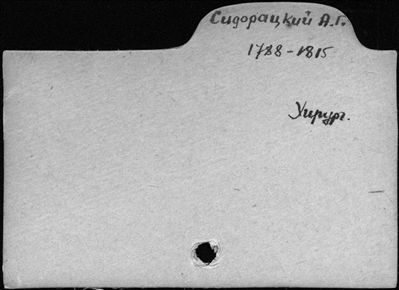 Сидорацкий А.Г.
1788-1815
Хирург.